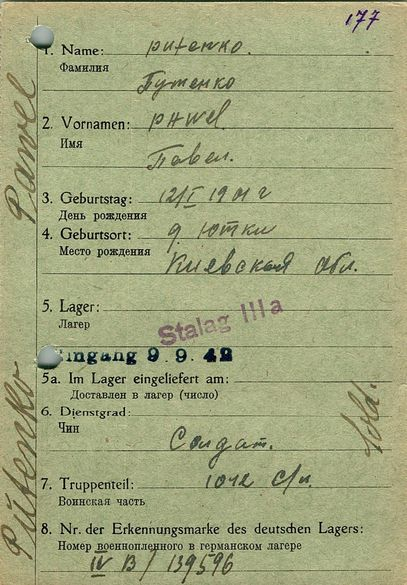 177
1. Name: putenko.
Фамилия
Путенко
2. Vornamen: pawel
Имя
Павел.
3. Geburtstag: 12/I 1901 г
День рождения
4. Geburtsort: д. Ютки
Место рождения
Киевская обл.
5. Lager:
Лагер
Stalag III a
Eingang 9. 9. 42
5a. Im Lager eingeliefert am:
Доставлен в лагер (число)
6. Dienstgrad:
Чин
Солдат.
Sold.
7. Truppenteil: 1042 с/п.
Воинская часть
8. Nr. der Erkennungsmarke des deutschen Lagers:
Номер военнопленного в германском лагере
IV B / 139596
Putenko Pawel